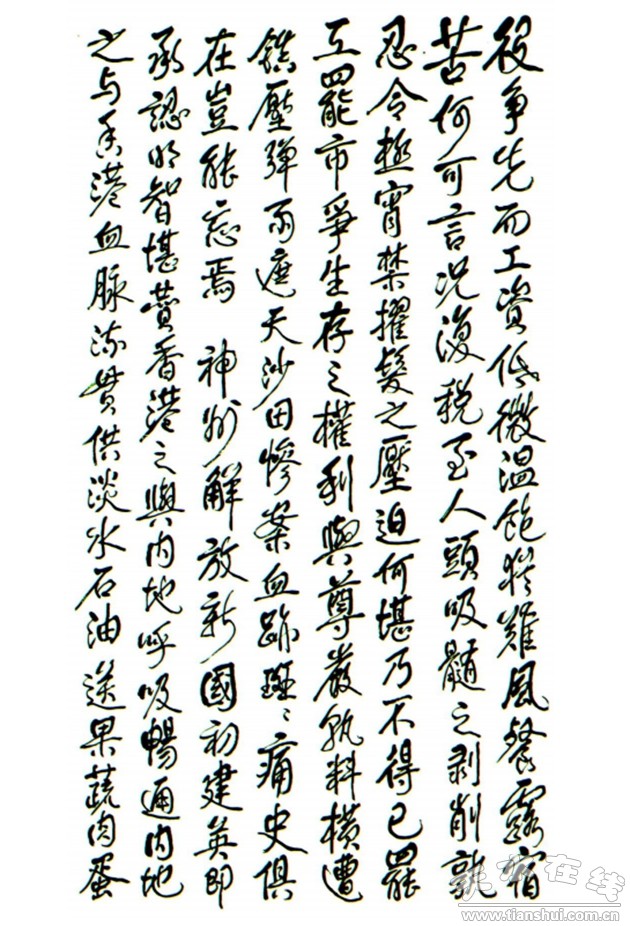 役争先而工資低微温飽猶難風餐露宿
苦何可言况復税至人頭吸髓之剥削孰
忍令極宵禁擢髮之壓迫何堪乃不得已罷
工罷市爭生存之權利與尊嚴孰料橫遭
鎮壓彈雨遮天沙田慘案血跡斑〻痛史俱
在豈能忘焉 神州解放新國初建英即
承認明智堪贊香港之與内地呼吸暢通内地
之与香港血脉流貫供淡水石油送果蔬肉蛋
天水在线
www.tianshui.com.cn